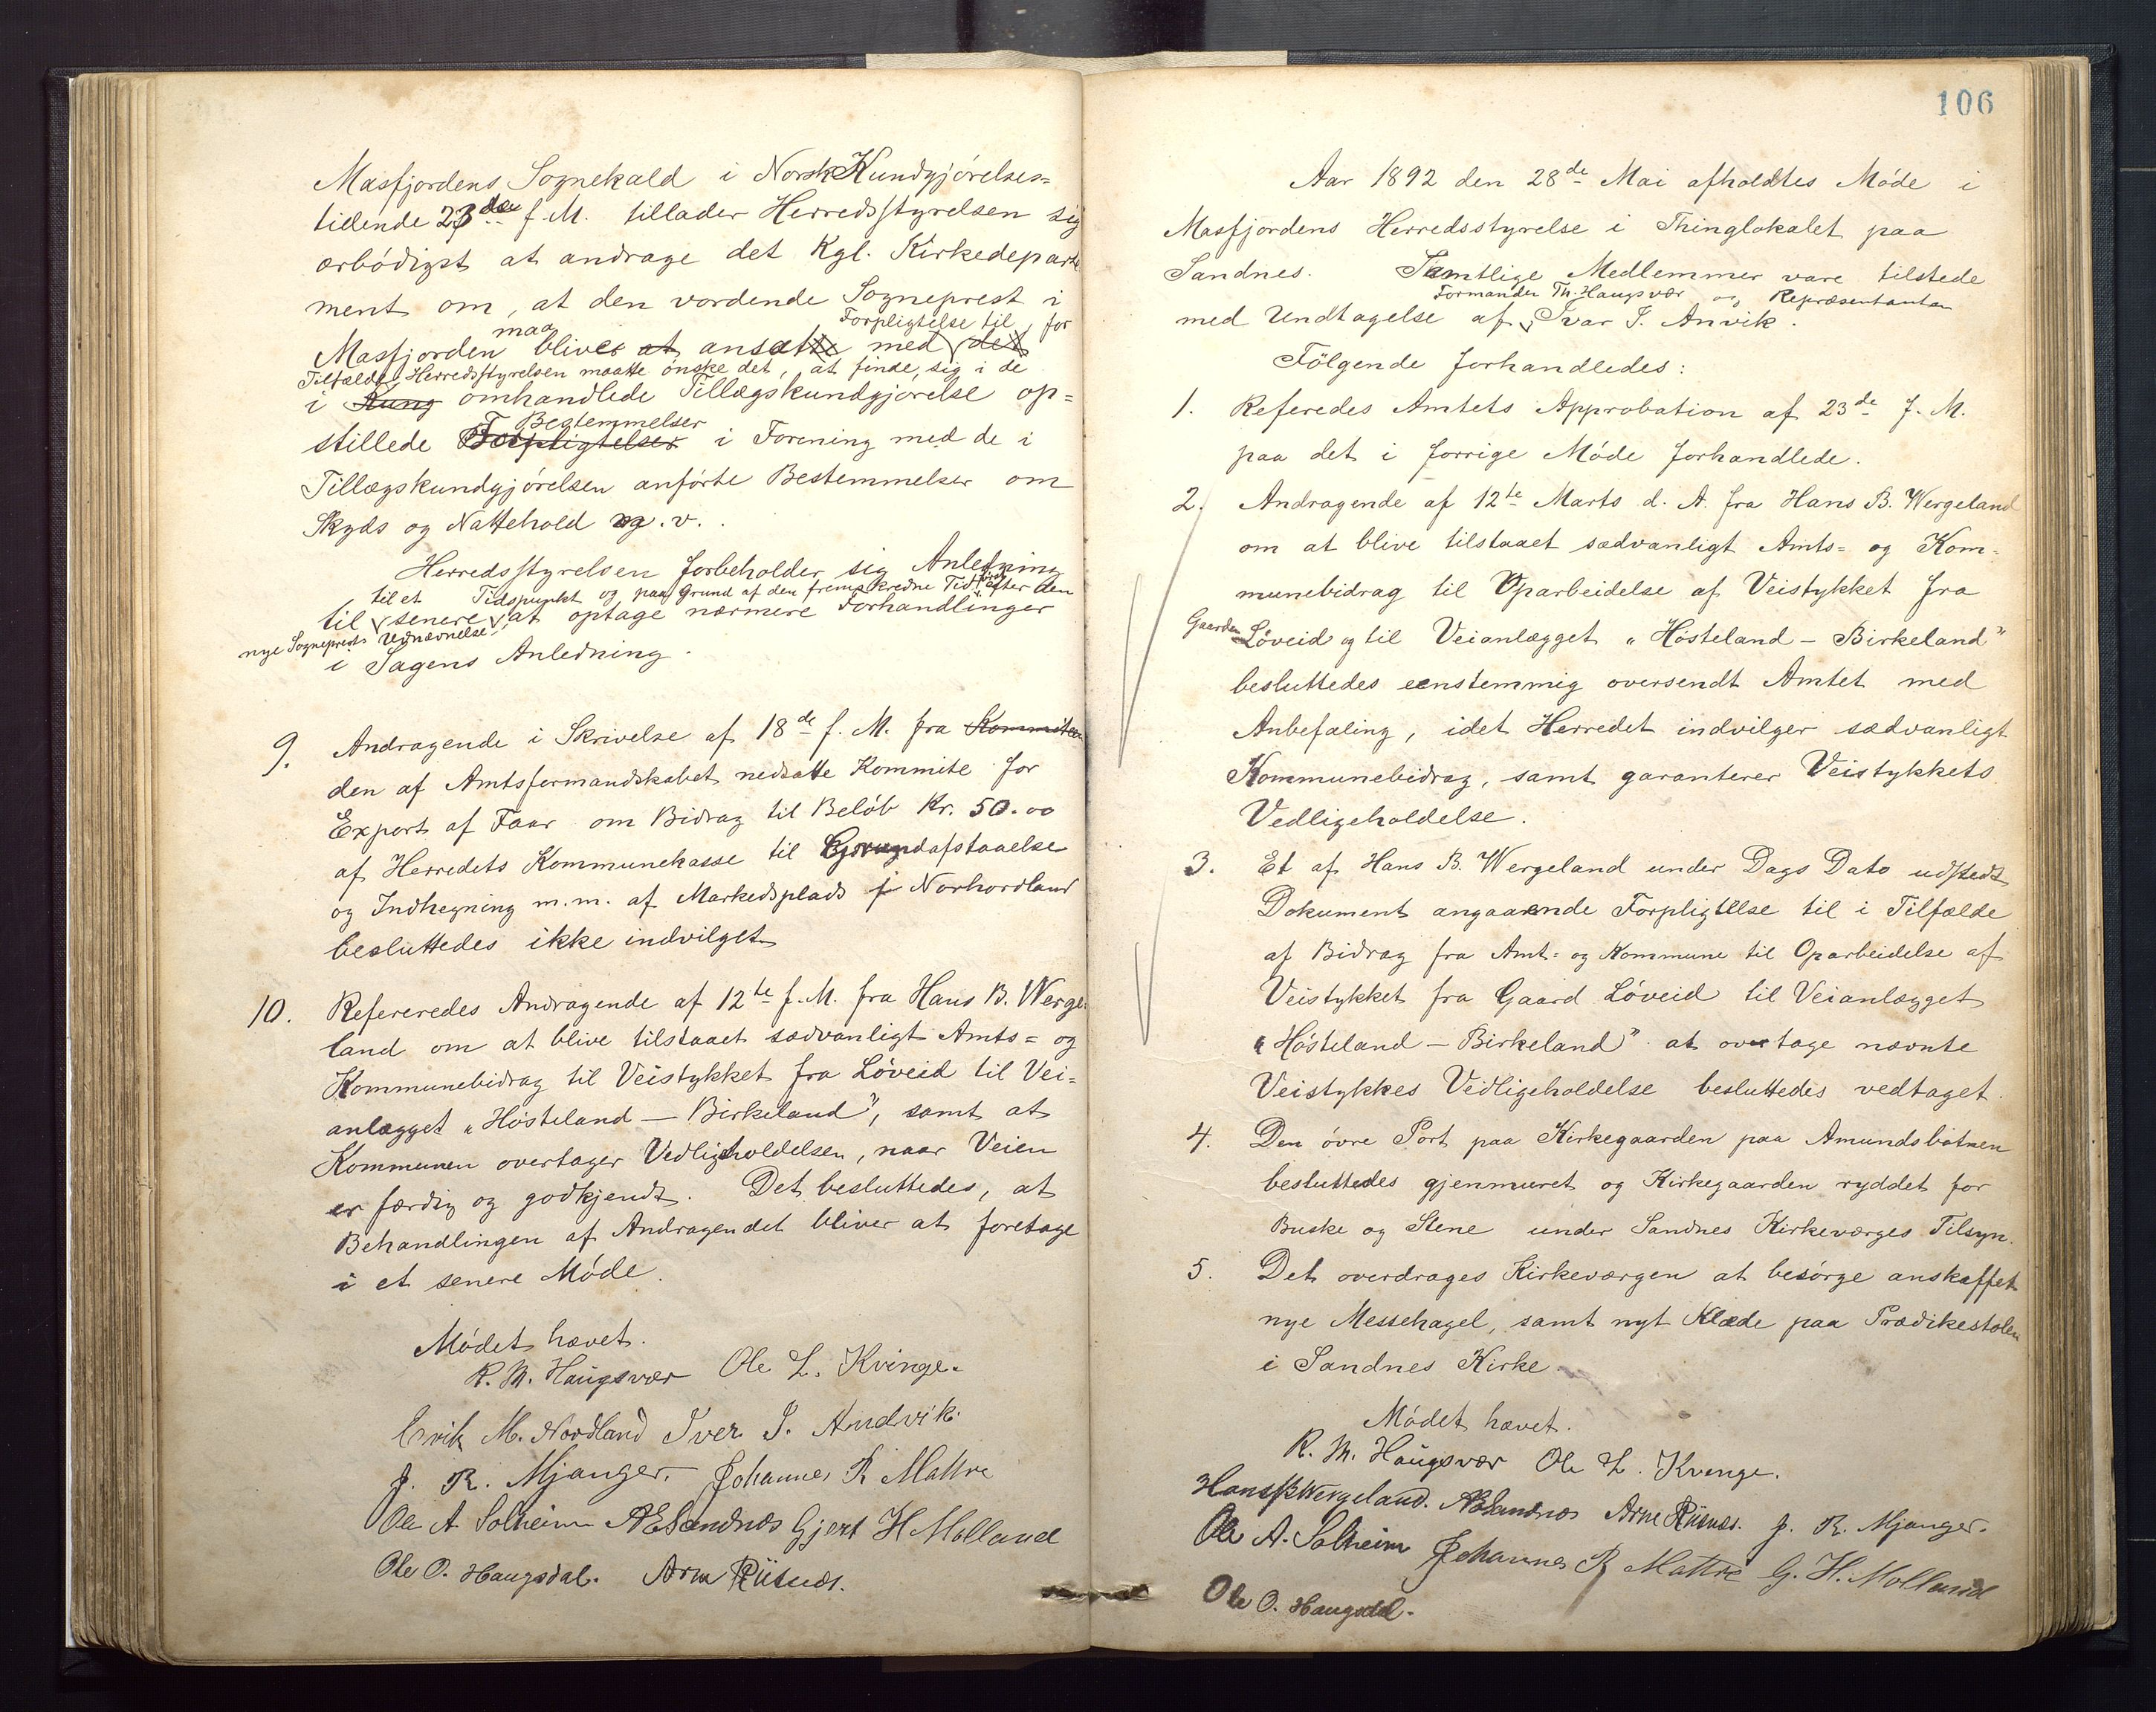 Masfjordens Sognekald i Norsk Kundgjørelses=
tidende 23de f. M. tillader Herredsstyrelsen sig
ærbødigst at andrage det Kgl. Kirkedeparte
ment om, at den vordende Sogneprest i
maa Forpligtelse til, for
Masfjorden blives at ansætte med det
Tilfælde, Herredsstyrelsen maatte ønske det, at finde sig i de
i Kung omhandlede Tillægskundgjørelse op=
Bestemmelser
stillede Forpligtelser i Forening med de i
Tillægskundgjørelsen anførte Bestemmelser om
Skyds og Nattehold og. v.
Herredsstyrelsen forbeholder sig Anledning
til et Tidspunkt og paa Grund af den fremskredne Tid efter den
til senere at optage nærmere Forhandlinger
nye Sogneprests Udnævnelse
i Sagens Anledning.
9. Andragende i Skrivelse af 18de f. M. fra Kommiteen
den af Amtsformandskabet nedsatte Kommite for
Export af Faar om Bidrag til Beløb Kr. 50.00
af Herredets Kommunekasse til Grundafstaaelse
og Indhegning m.m. af Markedsplads i Norhordland
besluttedes ikke indvilget
10. Refereredes Andragende af 12te f. M. fra Hans B. Werge-
land om at blive tilstaaet sædvanligt Amts= og
Kommunebidrag til Veistykket fra Løveid til Vei=
anlægget "Høsteland — Birkeland", samt at
Kommunen overtager Vedligeholdelsen, naar Veien
er færdig og godkjendt. Det besluttedes, at
Behandlingen af Andragendet bliver at foretage
i et senere Møde.
Mødet hævet.
R. M. Haugsvær Ole L. Kvinge.
Erik M. Nordland Iver I. Andvik.
J. R. Mjanger. Johannes R Mattre
Ole A Solheim A E Sandnæs Gjert H Molland
Ole O. Haugsdal. Arne Riisnæs.
106
Aar 1892 den 28de Mai afholdtes Møde i
Masfjordens Herredsstyrelse i Thinglokalet paa
Sandnes. Samtlige Medlemmer vare tilstede
Formanden Th. Haugsvær og Repræsentanten
med Undtagelse af Ivar I. Anvik.
Følgende forhandledes:
1. Referedes Amtets Approbation af 23de f. M.
paa det i forrige Møde forhandlede.
2. Andragende af 12te Marts d. A. fra Hans B. Wergeland
om at blive tilstaaet sædvanligt Amts= og Kom=
munebidrag til Oparbeidelse af Veistykket fra
Gaarden Løveid og til Veianlægget "Høsteland — Birkeland"
besluttedes eenstemmig oversendt Amtet med
Anbefaling, idet Herredet indvilger sædvanligt
Kommunebidrag, samt garanterer Veistykkets
Vedligeholdelse.
3. Et af Hans B. Wergeland under Dags Dato udstedt
Dokument angaaende Forpligtelse til i Tilfælde
af Bidrag fra Amt= og Kommune til Oparbeidelse af
Veistykket fra Gaard Løveid til Veianlægget
"Høsteland — Birkeland" at overtage nævnte
Veistykkes Vedligeholdelse besluttedes vedtaget.
4. Den øvre Port paa Kirkegaarden paa Amundsbotnen
besluttedes gjenmuret og Kirkegaarden ryddet for
Buske og Stene under Sandnes Kirkeværges Tilsyn.
5. Det overdrages Kirkeværgen at besørge anskaffet
nye Messehagel, samt nyt Klæde paa Prædikestolen
i Sandnes Kirke.
Mødet hævet.
R. M. Haugsvær Ole L. Kvinge.
Hans B Wergeland. A E Sandnæs Arne Riisnæs. J. R. Mjanger.
Ole A. Solheim Johannes R Mattre G. H. Molland
Ole O. Haugsdal.